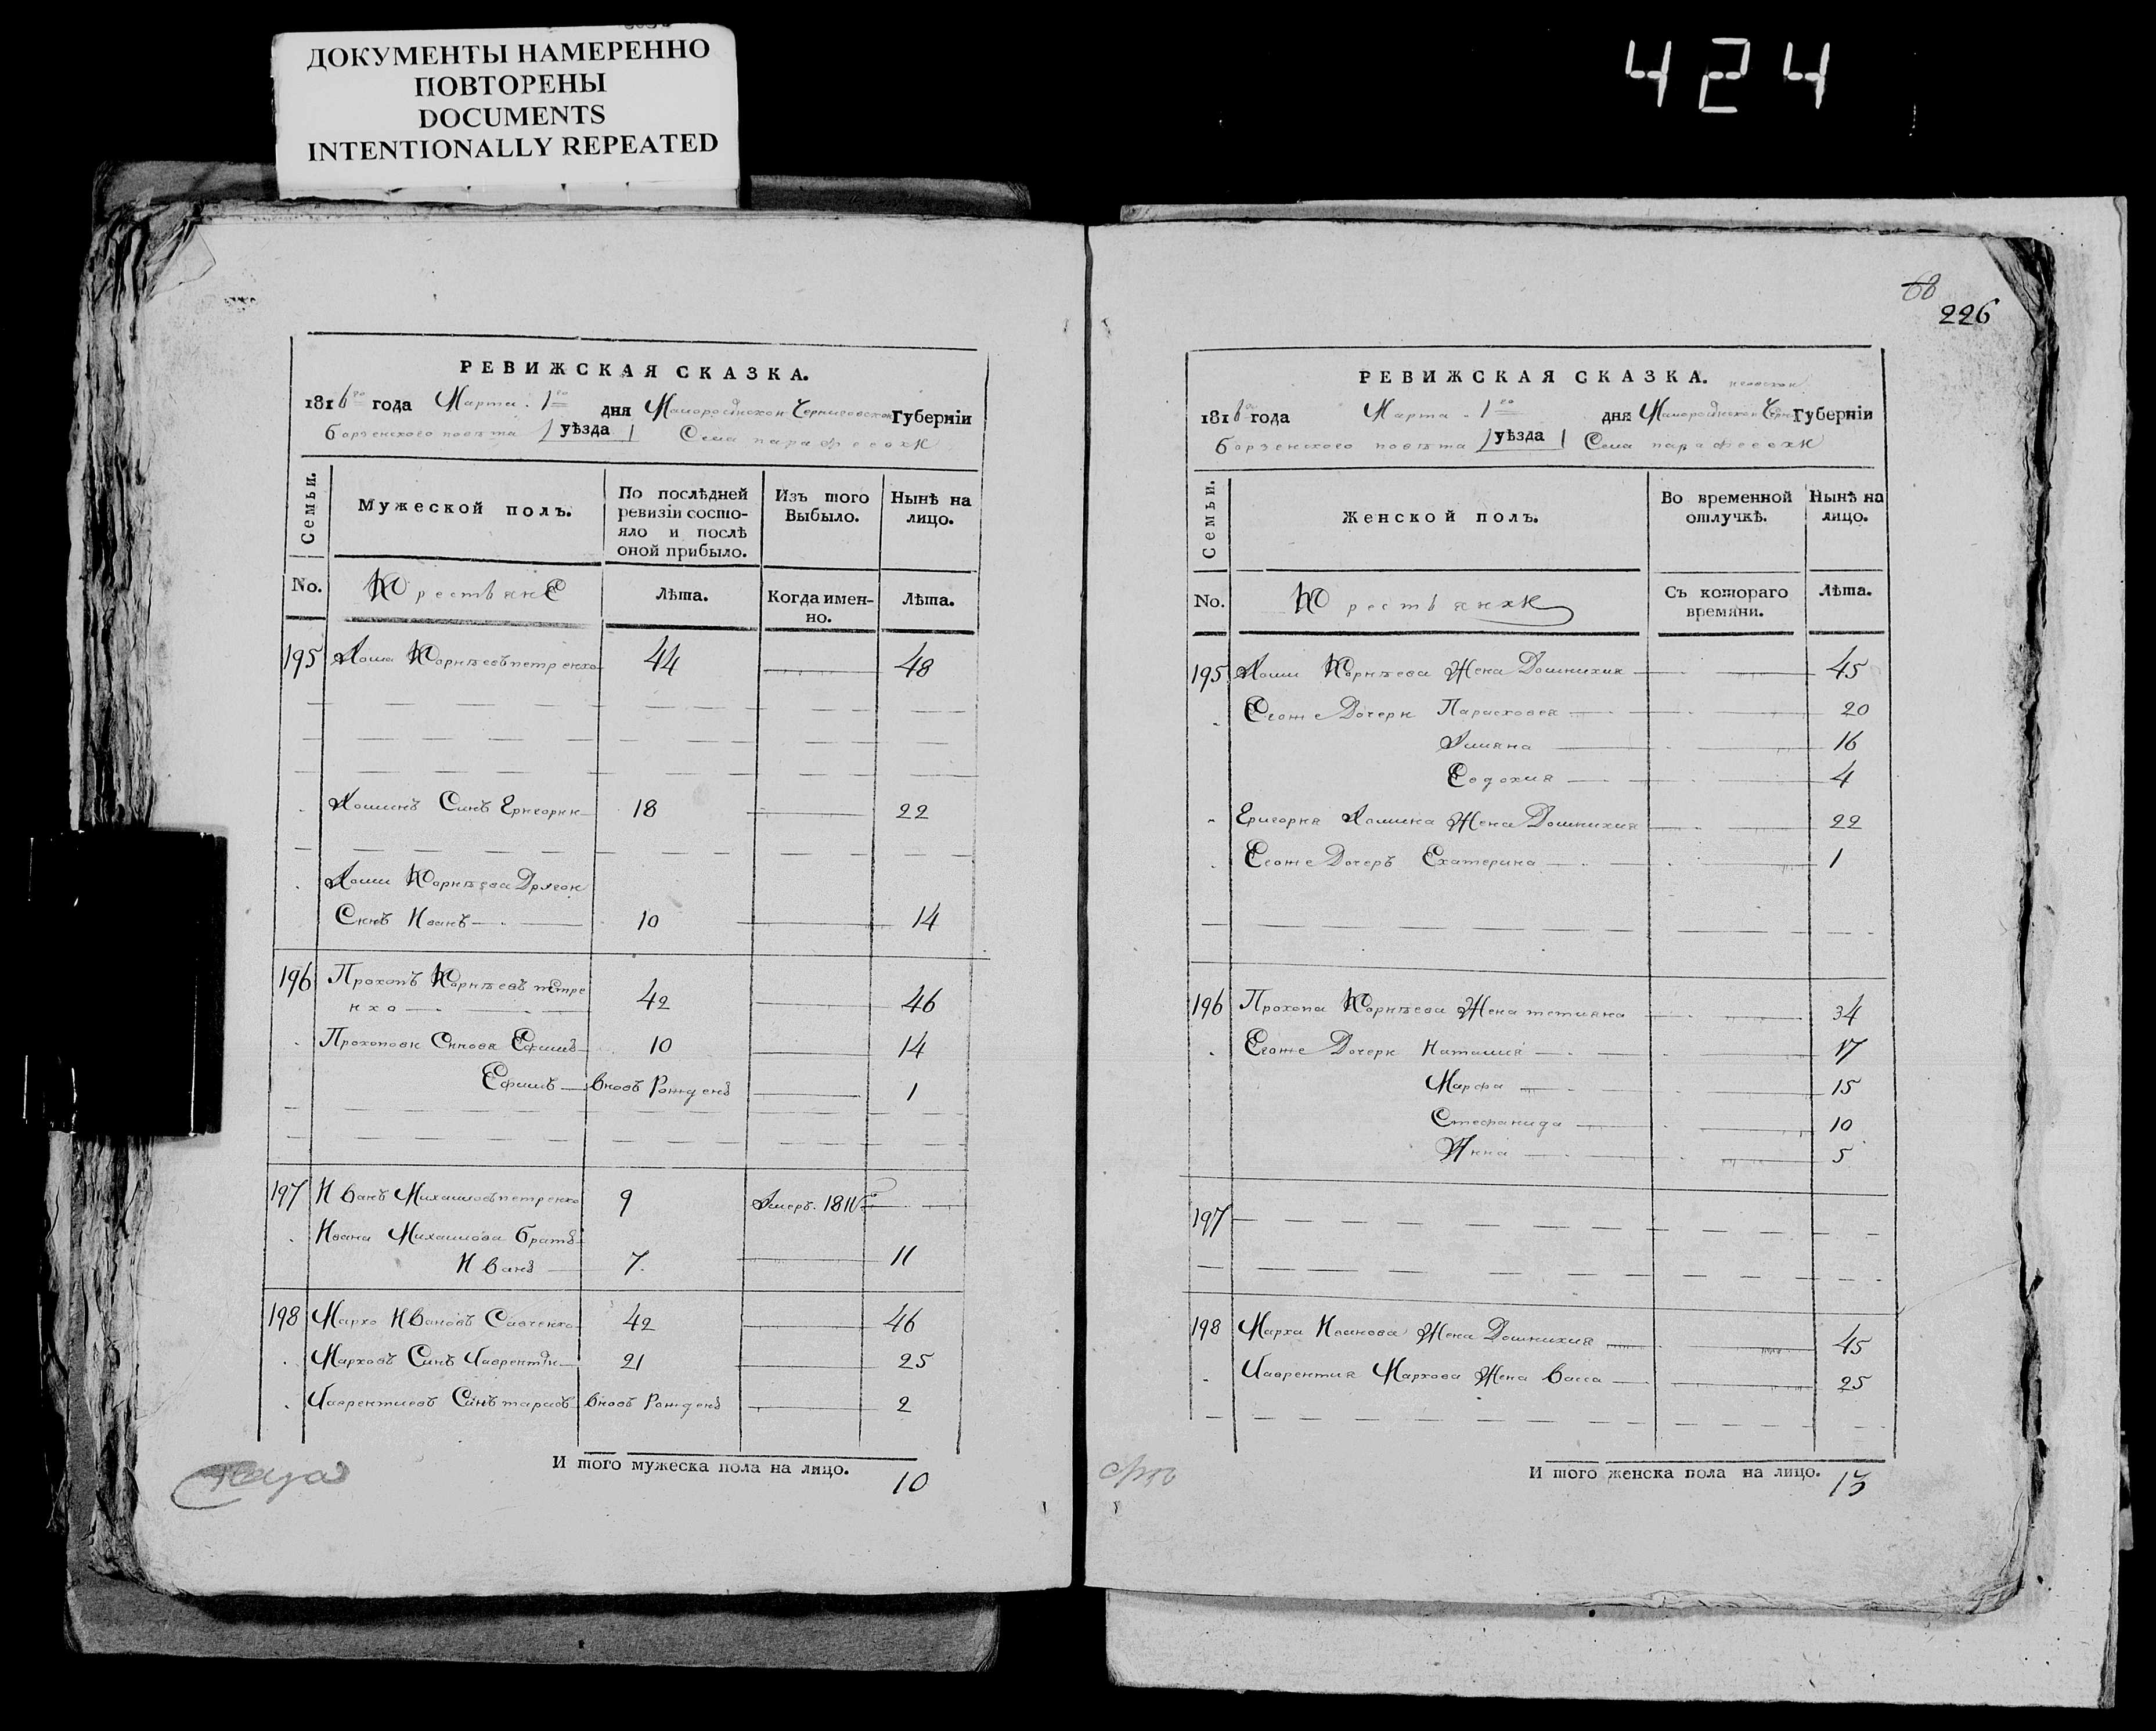 ДОКУМЕНТЫ НАМЕРЕННО
ПОВТОРЕНЫ
DOCUMENTS
INTENTIONALLY REPEATED
424
РЕВИЖСКАЯ СКАЗКА.
1816го года Марта 1го дня Малоросійской Черниговской Губерніи
борзенского повѣта уѣзда Села парафеевки
Семьи.
Мужеской полъ.
По послѣдней ревизіи состояло и послѣ оной прибыло.
Изъ того Выбыло.
Нынѣ на лицо.
No.
Крестьяне
Лѣта.
Когда именно.
Лѣта.
195 Хома Корнѣевъ петренко 44 48
Хоминъ Синъ Григорий 18 22
Хоми Корнѣева Другой
Синъ Иванъ 10 14
196 Прокопъ Корнѣевъ петре
нко 42 46
Прокопови Синове Ефимъ 10 14
Ефимъ вновъ Рожденъ 1
197 Иванъ Михаиловъ петренко 9 Умеръ. 1811
Ивана Михаилова братъ
Иванъ 7 11
198 Марко Ивановъ Савченко 42 46
Марковъ Синъ Лаврентій 21 25
Лаврентиевъ Синъ тарасъ вновъ Рожденъ 2
И того мужеска пола на лицо. 10
68
226
РЕВИЖСКАЯ СКАЗКА.
1816го года Марта 1го дня Малоросійской Черни Губерніи
борзенского повѣта уѣзда Села парафеевки
Семьи.
Женской полъ.
Во временной отлучкѣ.
Нынѣ на лицо.
No.
Крестьянки
Съ котораго времяни.
Лѣта.
195 Хоми Корнѣева Жена Домникия 45
Егоже Дочери Парасковея 20
Улияна 16
Евдокия 4
Григория Хомина Жена Домникия 22
Егоже Дочеръ Екатерина 1
196 Прокопа Корнѣева Жена тетияна 34
Егоже Дочери Наталия 17
Марфа 15
Стефанида 10
Анна 5
197
198 Марка Иванова Жена Домникия 45
Лаврентия Маркова Жена Васса 25
И того женска пола на лицо. 13